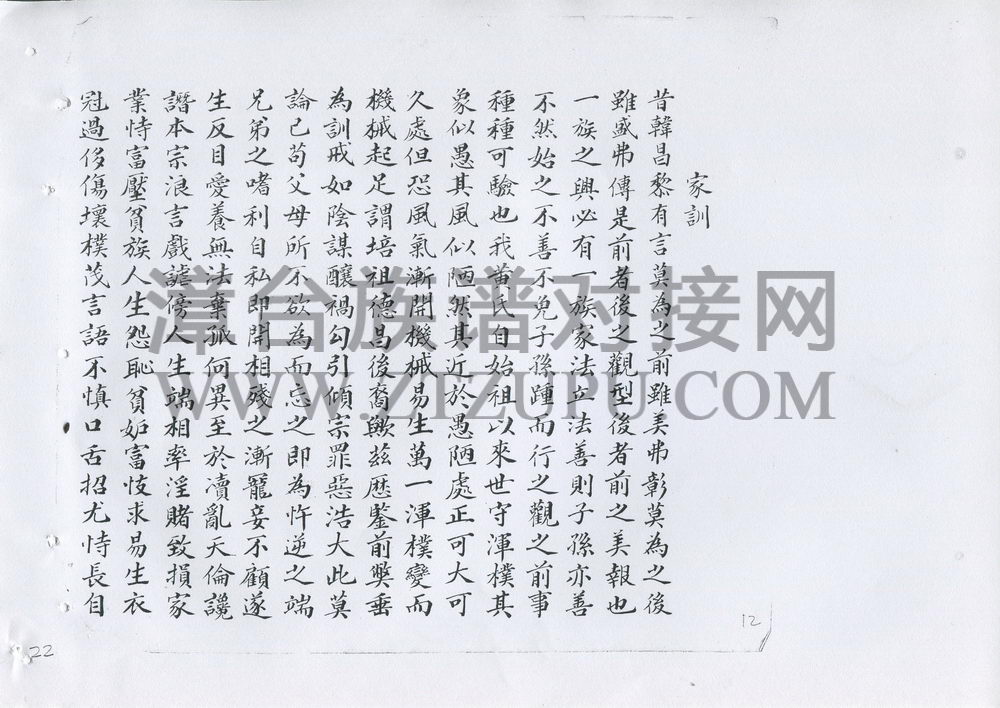 家訓
昔韓昌黎有言莫為之前雖美弗彰莫為之後
雖盛弗傳是前者後之觀型後者前之美報也
一族之興必有一族家法立法善則子孫亦善
不然始之不善不免子孫踵而行之觀之前事
種種可驗也我黃氏自始祖以來世守渾樸其
象似愚其風似陋然其近於愚陋處正可大可
久處但恐風氣漸開機械易生萬一渾樸變而
機械起足謂培祖德昌後裔歟茲歷鑒前獘垂
為訓戒如陰謀釀禍勾引傾宗罪惡浩大此莫
論己苟父母所不欲為而忘之即為忤逆之端
兄弟之嗜利自私即開相殘之漸寵妾不顧遂
生反目愛養無法棄孤何異至於瀆亂天倫讒
譖本宗浪言戲謔傍人生端相率淫賭致損家
業恃富壓貧族人生怨恥貧妒富忮求易生衣
冠過侈傷壞樸茂言語不慎口舌招尤恃長自
12
22
漳台族谱对接网
WWW.ZTZUPU.COM